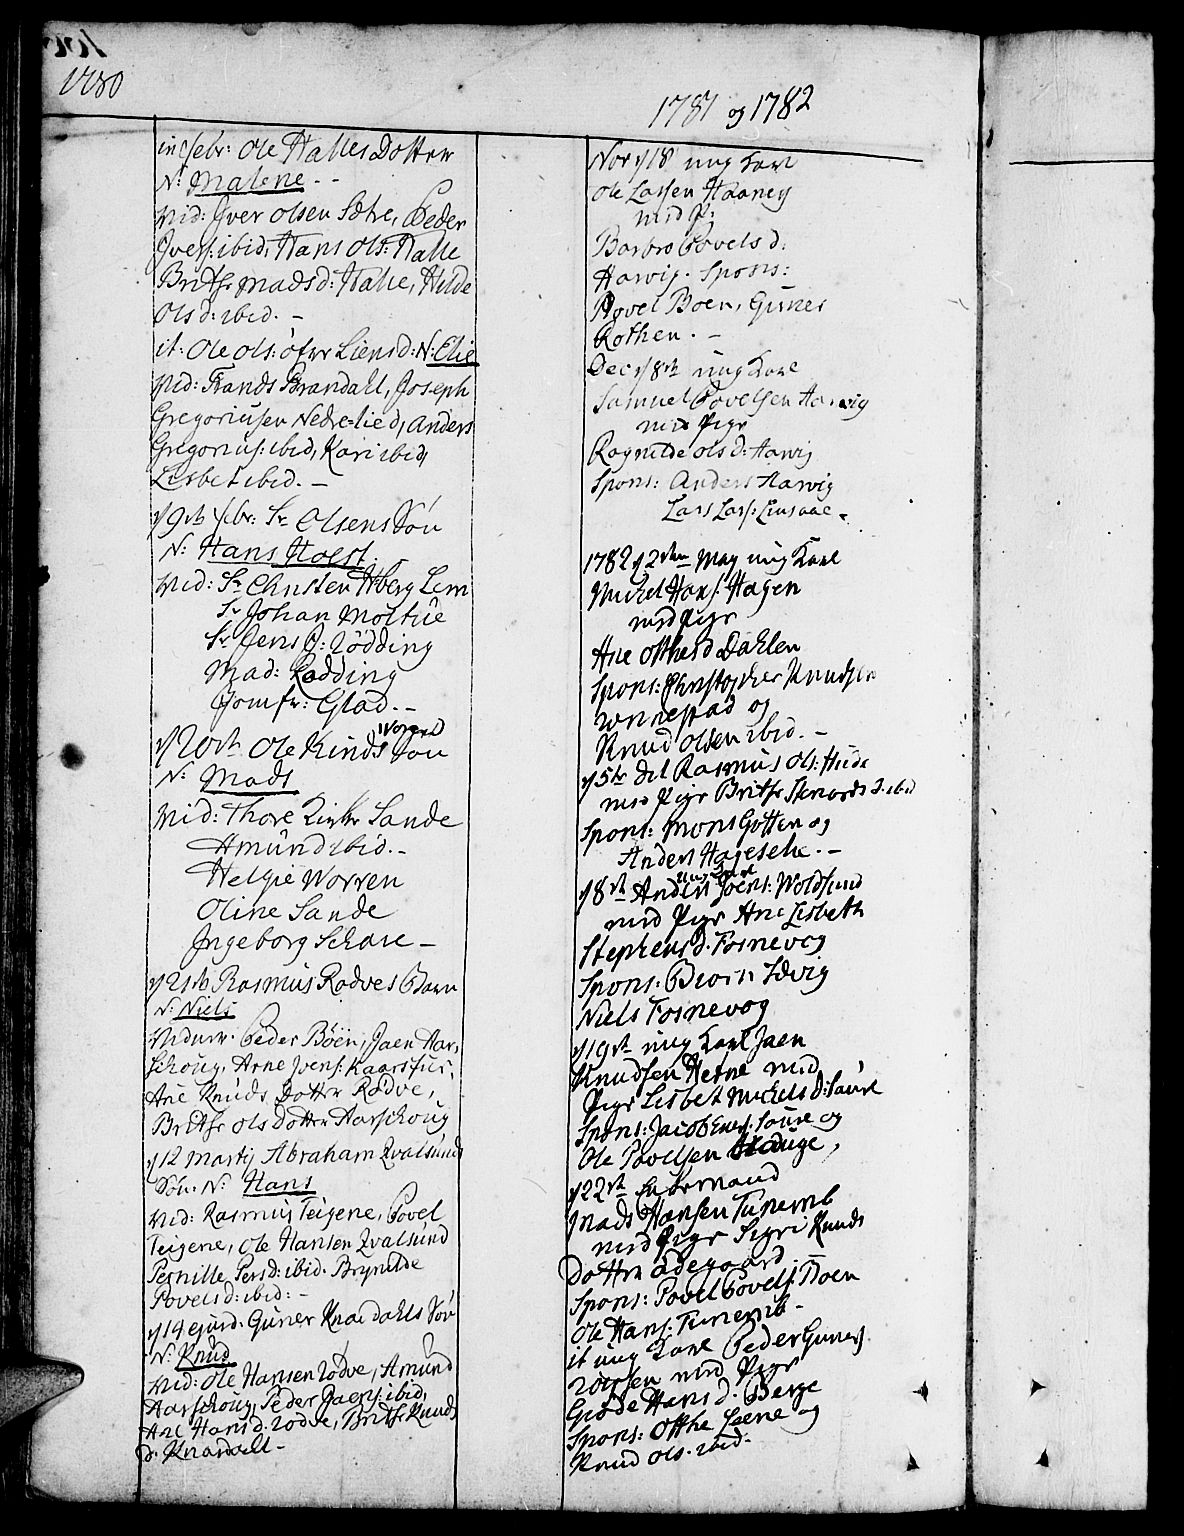 1780
in febr: Ole Halles Dotter
N: Malene. -
Vid: Iver Olsen Sætre, Peder
Ivers: ibid, Hans Ols: Halle
Brithe Mads d: Halle, Hilde
Ols d: ibid. -
it: Ole Ols: øfre Liens d: N: Elie
Vid: Frands Brandahl, Joseph
Gregoriusen Nedre-lied, Anders
Gregorius: ibid, Kari ibid,
Lisbet ibid. -
d 9de febr: Sr Olsens Søn
N: Hans Holst.
Vid: Sr Christen Aberg Lem
Sr Johan Moltue
Sr Jens P: Rødding
Mad: Rødding
Jomfr: Glad. -
d 20de Ole Kinds Worren Søn
N: Mads
Vid: Thore Sande
Amund ibid. -
Helge Worren
Oline Sande
Ingeborg Schare -
d 21de Rasmus Rødves Barn
N: Niels
Vidner: Peder Bøen, Jaen Aar,
schoug, Arne Joens: Kaarsfur,
Ane Knuds Dotter Rødve,
Brithe Ols Dotter Aarschoug
d 12 Martij Abraham Qvalsunds
Søn. N: Hans
Vid: Rasmus Teigene, Povel
Teigene, Ole Hansen Qvalsund
Pernille Pers d: ibid. Brynilde
Povels d: ibid: -
d 14 ejusd. Guner Knardahls Søn
N: Knud
Vid: Ole Hansen Rødve, Amund
Aarschoug, Peder Jaens: ibid,
Ane Hans d: Rødve, Brithe Knuds
d: Knardahl -
1781 og 1782
Nov d 18 ung Karl
Ole Larsen Haaneg
med P:
Barbro Povels d:
Harvig. Spons:
Povel Boen, Guner
Rothen. -
Dec d 8de ung Karl
Samuel Povelsen Harvig
med Pige
Ragnilde Ols d: Harvig
Spons: Anders Harvig
Lars Lars:
1782 d 2den May ung Karl
Michel Hans: Hagen
med Pige
Ane Otthes d Dahlen
Spons: Christopher Knudsen
og
Knud Olsen ibid. -
d 5te Rasmus Ols: Hude
med Pige Brithe d. ibid
Spons: Mons Gotten og
Anders -
d 8de Anders ung Karl Joens: Woldsund
med Pige Ane Lisbeth
Stephens d. Fosnevog
Spons: Sævig
Niels Fosnevog
d 19de ung Karl Jaen
Knudsen Herne med
Pige Lisbet Michels d: Saure
Spons: Jacob Saure og
Ole Povelsen
d 22de Enkemand
Mads Hansen Tunemb
med Pige Sigri Knuds
Dotter Ødegaard -
Spons: Povel Povels: Boen
Ole Hans: Tunemb -
it ung Karl Peder Guners:
med Pige
Giøde Hans d. Berge
Spons: Otthe Leene og
Knud Ols. ibid.